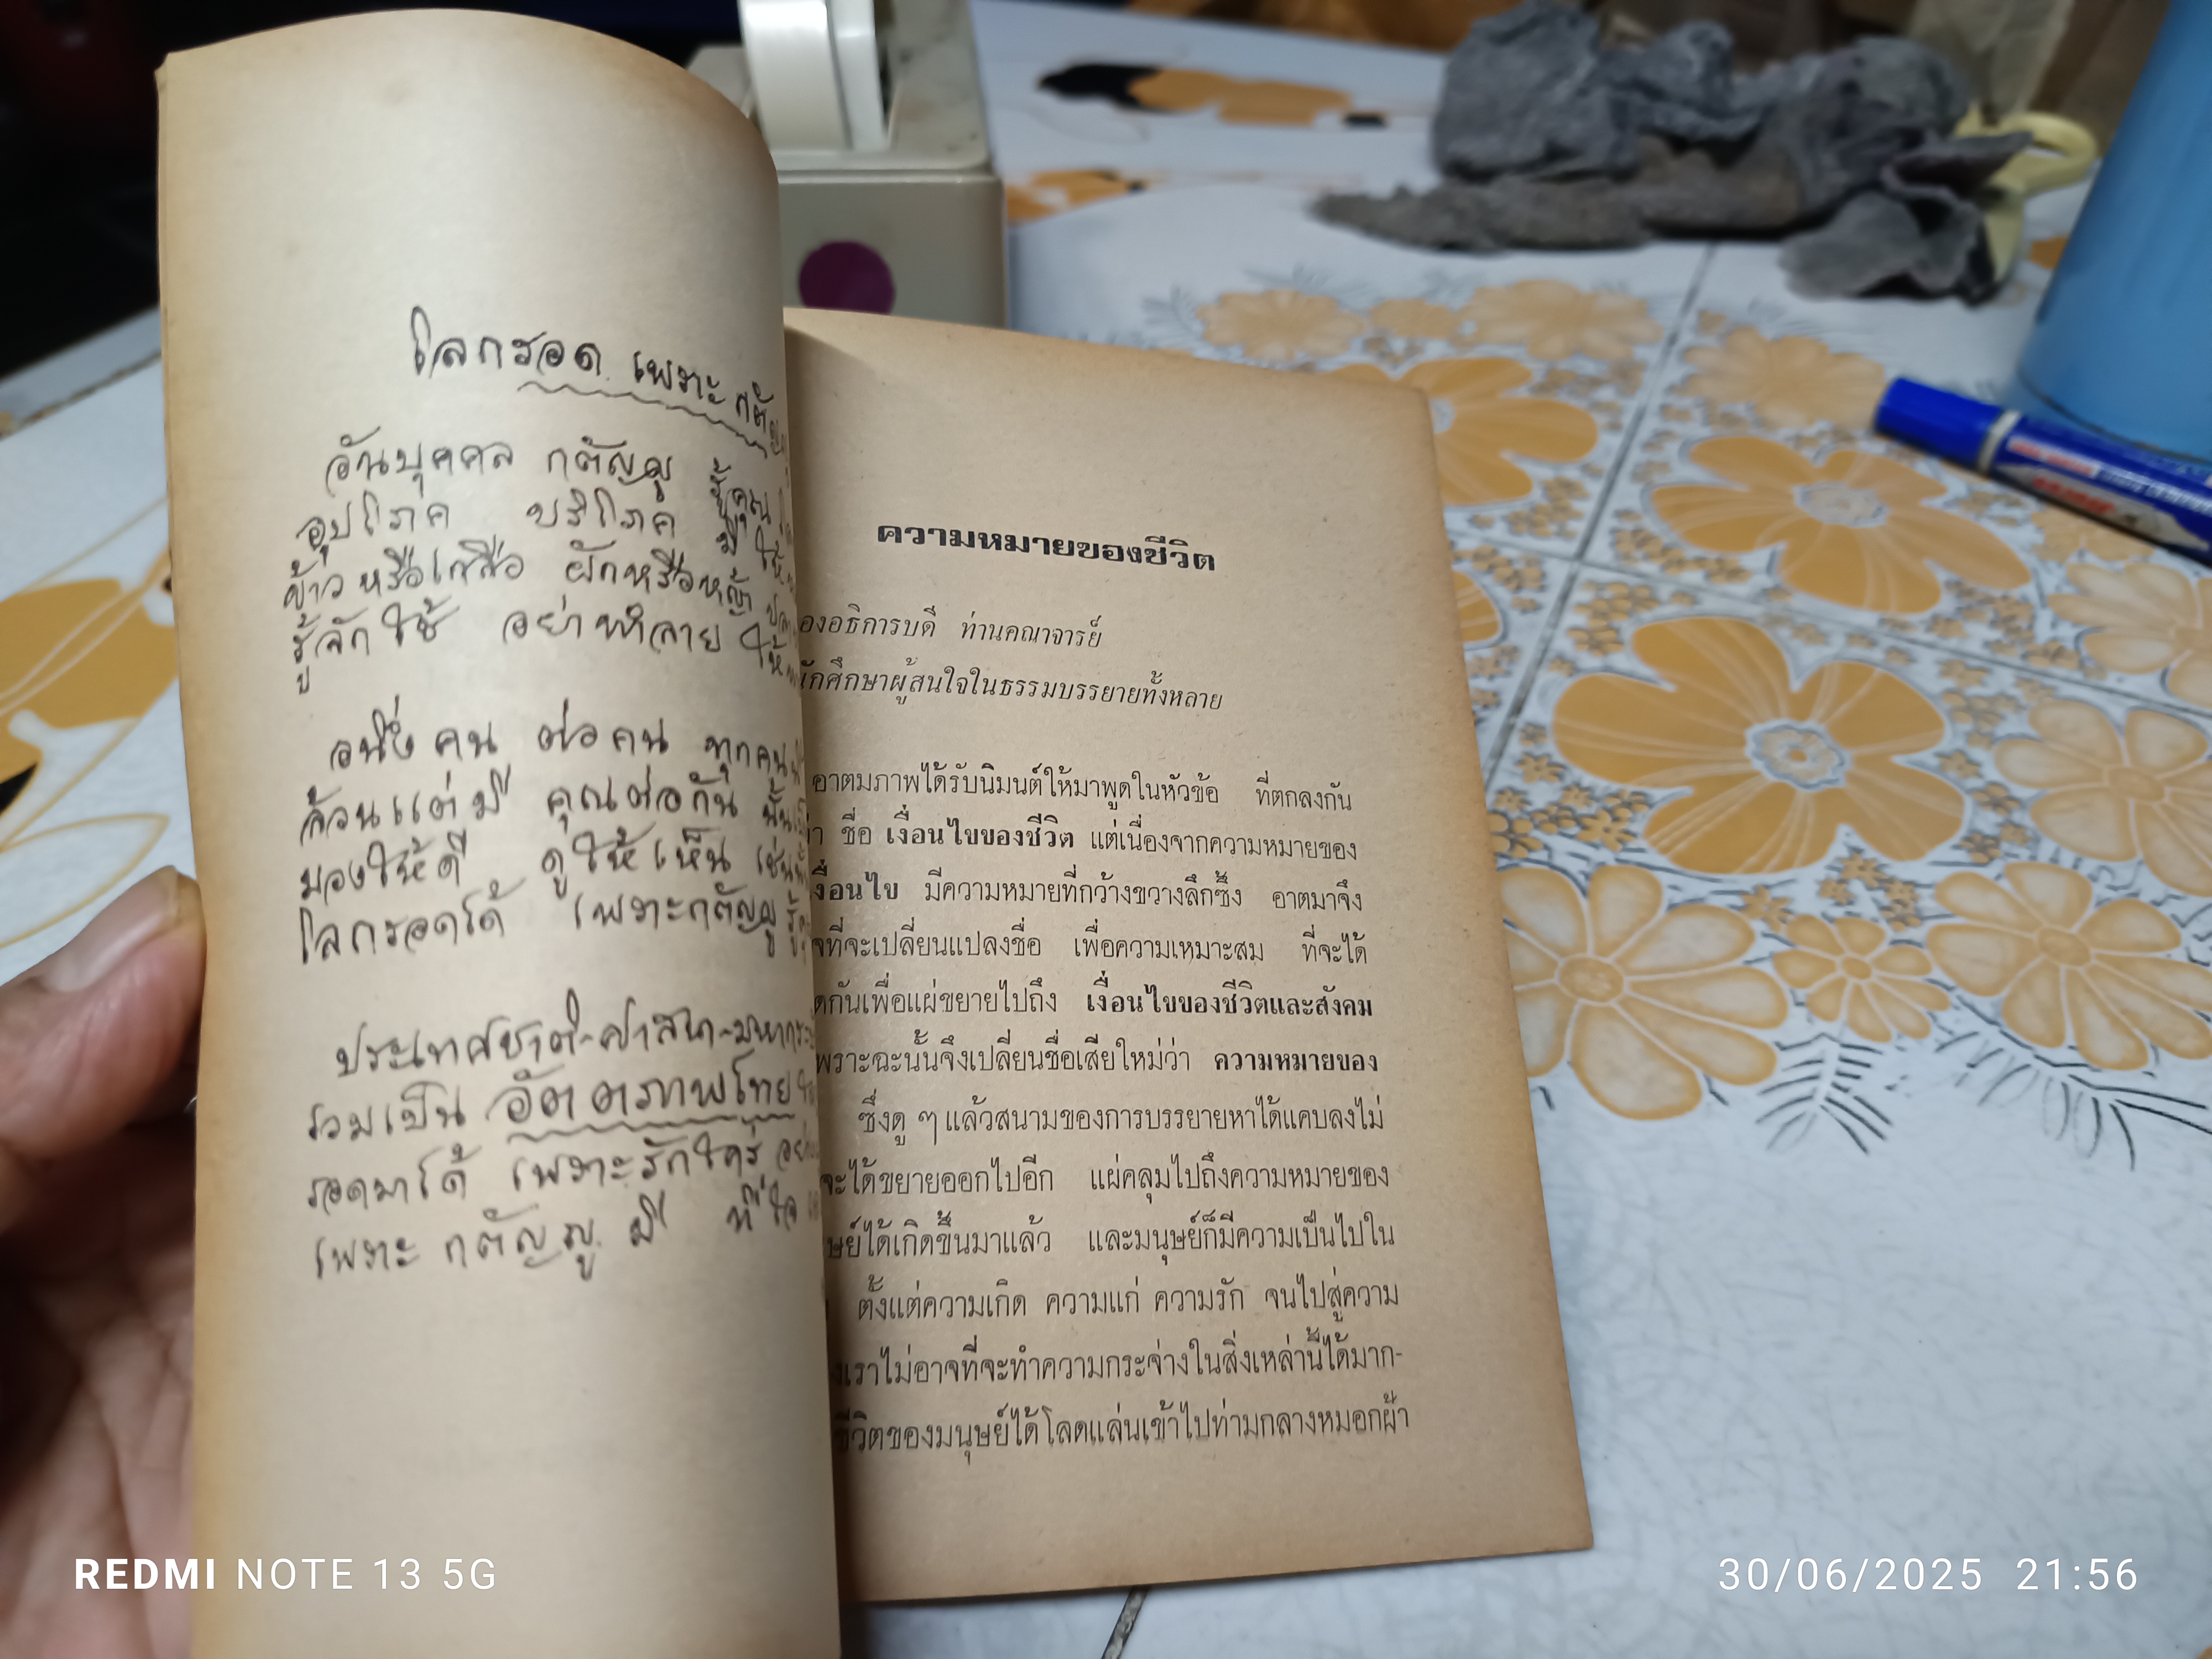 โลกรอด เพราะ
อันบุคคล กตัญญู รู้คุณ
อุปโภค บริโภค มี ให้
ข้าวหรือเกลือ ผักหรือหญ้า
รู้จักใช้ อย่าทำลาย ให้
อนึ่งคน ต่อคน ทุกคน
ล้วนแต่มี คุณต่อกัน นั้น
มองให้ดี ดูให้เห็น เช่น
โลกรอดได้ เพราะกตัญญู
ประเทศชาติ-ศาสนา-มหา
รวมเป็น อัตตภาพไทย
รอดมาได้ เพราะรักใคร่
เพราะ กตัญญู มี
ความหมายของชีวิต
องอธิการบดี ท่านคณาจารย์
ักศึกษาผู้สนใจในธรรมบรรยายทั้งหลาย
อาตมภาพได้รับนิมนต์ให้มาพูดในหัวข้อ ที่ตกลงกัน
ชื่อ เงื่อนไขของชีวิต แต่เนื่องจากความหมายของ
งื่อนไข มีความหมายที่กว้างขวางลึกซึ้ง อาตมาจึง
ที่จะเปลี่ยนแปลงชื่อ เพื่อความเหมาะสม ที่จะได้
ดกันเพื่อแผ่ขยายไปถึง เงื่อนไขของชีวิตและสังคม
พราะฉะนั้นจึงเปลี่ยนชื่อเสียใหม่ว่า ความหมายของ
ซึ่งดู ๆ แล้วสนามของการบรรยายหาได้แคบลงไม่
จะได้ขยายออกไปอีก แผ่คลุมไปถึงความหมายของ
ษย์ได้เกิดขึ้นมาแล้ว และมนุษย์ก็มีความเป็นไปใน
ตั้งแต่ความเกิด ความแก่ ความรัก จนไปสู่ความ
งเราไม่อาจที่จะทำความกระจ่างในสิ่งเหล่านี้ได้มาก-
ชีวิตของมนุษย์ได้โลดแล่นเข้าไปท่ามกลางหมอกฝ้า
REDMI NOTE 13 5G
30/06/2025 21:56